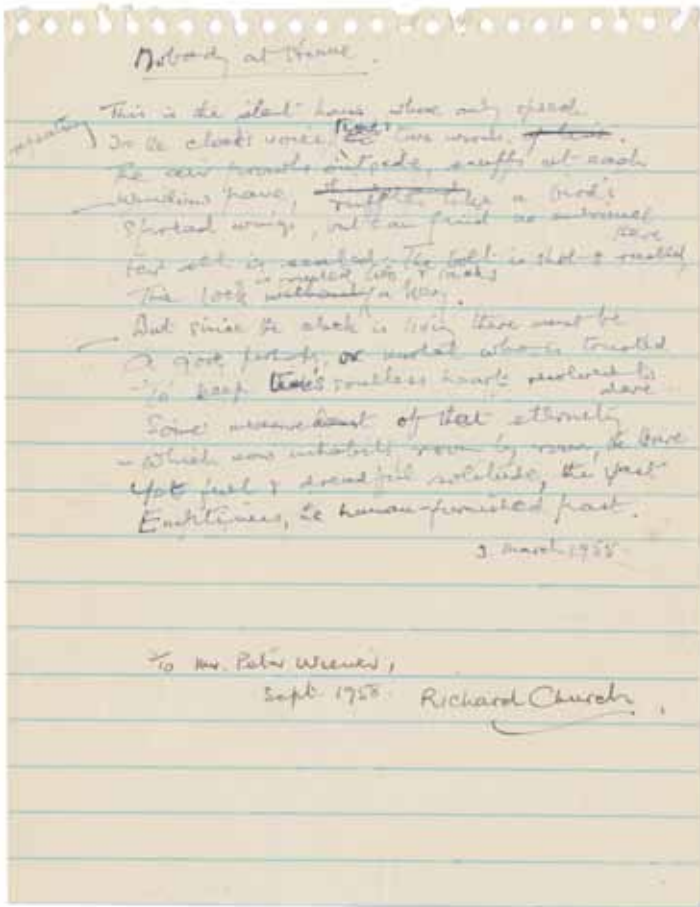 Nobody at Home.
This is the silent house, where only speech
repeating
Is the clock's voice, two words.
The air prowls outside, snuffs at each
Window pane, ruffles like a bird's
Spread wings, but can find no entrance
For all is sealed. The bolt is shot &
The lock a key.
But since the clock is living there must be
A god perhaps, or mortal who is trusted
To keep time's soulless heart resolved to
Some measurement of that eternity
Which now inhabits room by room, the
Yet full & dreadful solitude, the vast
Emptiness, the human-furnished past.
3 March 1958
To Mr. Peter
Sept. 1958. Richard Church.